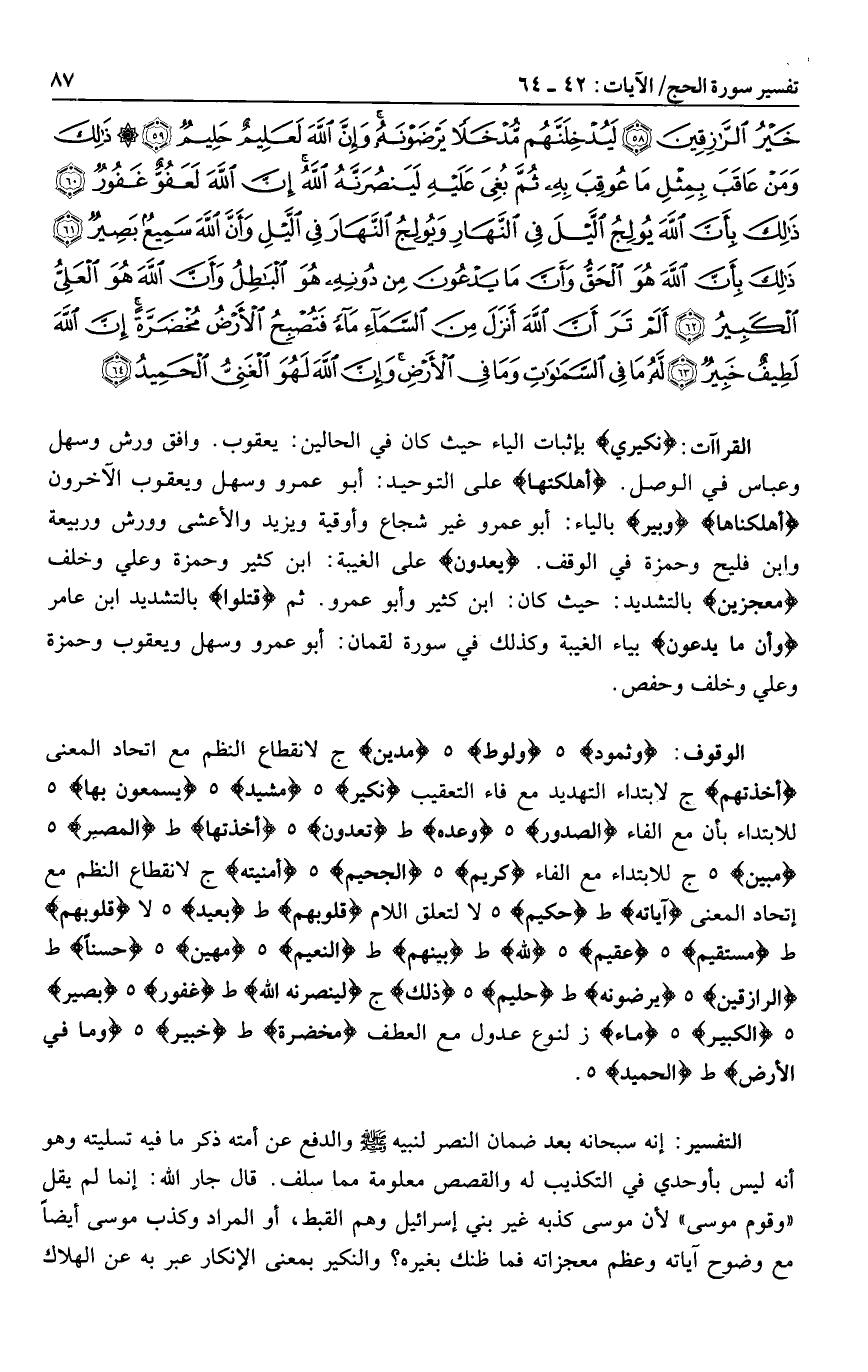 تفسير سورة الحج/ الآيات: ٤٢ ـ ٦٤ ٨٧
خَيْرُ ٱلرَّٰزِقِينَ ﴿٥٨﴾ لَيُدْخِلَنَّهُم مُّدْخَلًا يَرْضَوْنَهُۥ ۗ وَإِنَّ ٱللَّهَ لَعَلِيمٌ حَلِيمٌ ﴿٥٩﴾ ۞ ذَٰلِكَ
وَمَنْ عَاقَبَ بِمِثْلِ مَا عُوقِبَ بِهِۦ ثُمَّ بُغِىَ عَلَيْهِ لَيَنصُرَنَّهُ ٱللَّهُ ۗ إِنَّ ٱللَّهَ لَعَفُوٌّ غَفُورٌ ﴿٦٠﴾
ذَٰلِكَ بِأَنَّ ٱللَّهَ يُولِجُ ٱلَّيْلَ فِى ٱلنَّهَارِ وَيُولِجُ ٱلنَّهَارَ فِى ٱلَّيْلِ وَأَنَّ ٱللَّهَ سَمِيعٌۢ بَصِيرٌ ﴿٦١﴾
ذَٰلِكَ بِأَنَّ ٱللَّهَ هُوَ ٱلْحَقُّ وَأَنَّ مَا يَدْعُونَ مِن دُونِهِۦ هُوَ ٱلْبَٰطِلُ وَأَنَّ ٱللَّهَ هُوَ ٱلْعَلِىُّ
ٱلْكَبِيرُ ﴿٦٢﴾ أَلَمْ تَرَ أَنَّ ٱللَّهَ أَنزَلَ مِنَ ٱلسَّمَآءِ مَآءً فَتُصْبِحُ ٱلْأَرْضُ مُخْضَرَّةً ۗ إِنَّ ٱللَّهَ
لَطِيفٌ خَبِيرٌ ﴿٦٣﴾ لَّهُۥ مَا فِى ٱلسَّمَٰوَٰتِ وَمَا فِى ٱلْأَرْضِ ۗ وَإِنَّ ٱللَّهَ لَهُوَ ٱلْغَنِىُّ ٱلْحَمِيدُ ﴿٦٤﴾
القراآت: ﴿نكيري﴾ بإثبات الياء حيث كان في الحالين: يعقوب. وافق ورش وسهل
وعباس في الوصل. ﴿أهلكتها﴾ على التوحيد: أبو عمرو وسهل ويعقوب الآخرون
﴿أهلكناها﴾ ﴿وبير﴾ بالياء: أبو عمرو غير شجاع وأوقية ويزيد والأعشى وورش وربيعة
وابن فليح وحمزة في الوقف. ﴿يعدون﴾ على الغيبة: ابن كثير وحمزة وعلي وخلف
﴿معجزين﴾ بالتشديد: حيث كان: ابن كثير وأبو عمرو. ثم ﴿قتلوا﴾ بالتشديد ابن عامر
﴿وأن ما يدعون﴾ بياء الغيبة وكذلك في سورة لقمان: أبو عمرو وسهل ويعقوب وحمزة
وعلي وخلف وحفص.
الوقوف: ﴿وثمود﴾ ٥ ﴿ولوط﴾ ٥ ﴿مدين﴾ ج لانقطاع النظم مع اتحاد المعنى
﴿أخذتهم﴾ ج لابتداء التهديد مع فاء التعقيب ﴿نكير﴾ ٥ ﴿مشيد﴾ ٥ ﴿يسمعون بها﴾ ٥
للابتداء بأن مع الفاء ﴿الصدور﴾ ٥ ﴿وعده﴾ ط ﴿تعدون﴾ ٥ ﴿أخذتها﴾ ط ﴿المصير﴾ ٥
﴿مبين﴾ ٥ ج للابتداء مع الفاء ﴿كريم﴾ ٥ ﴿الجحيم﴾ ٥ ﴿أمنيته﴾ ج لانقطاع النظم مع
إتحاد المعنى ﴿آياته﴾ ط ﴿حكيم﴾ ٥ لا لتعلق اللام ﴿قلوبهم﴾ ط ﴿بعيد﴾ ٥ لا ﴿قلوبهم﴾
ط ﴿مستقيم﴾ ٥ ﴿عقيم﴾ ٥ ﴿لله﴾ ط ﴿بينهم﴾ ط ﴿النعيم﴾ ٥ ﴿مهين﴾ ٥ ﴿حسناً﴾ ط
﴿الرازقين﴾ ٥ ﴿يرضونه﴾ ط ﴿حليم﴾ ٥ ﴿ذلك﴾ ج ﴿لينصرنه الله﴾ ط ﴿غفور﴾ ٥ ﴿بصير﴾
٥ ﴿الكبير﴾ ٥ ﴿ماء﴾ ز لنوع عدول مع العطف ﴿مخضرة﴾ ط ﴿خبير﴾ ٥ ﴿وما في
الأرض﴾ ط ﴿الحميد﴾ ٥.
التفسير: إنه سبحانه بعد ضمان النصر لنبيه ﷺ والدفع عن أمته ذكر ما فيه تسليته وهو
أنه ليس بأوحدي في التكذيب له والقصص معلومة مما سلف. قال جار الله: إنما لم يقل
«وقوم موسى» لأن موسى كذبه غير بني إسرائيل وهم القبط، أو المراد وكذب موسى أيضاً
مع وضوح آياته وعظم معجزاته فما ظنك بغيره؟ والنكير بمعنى الإنكار عبر به عن الهلاك